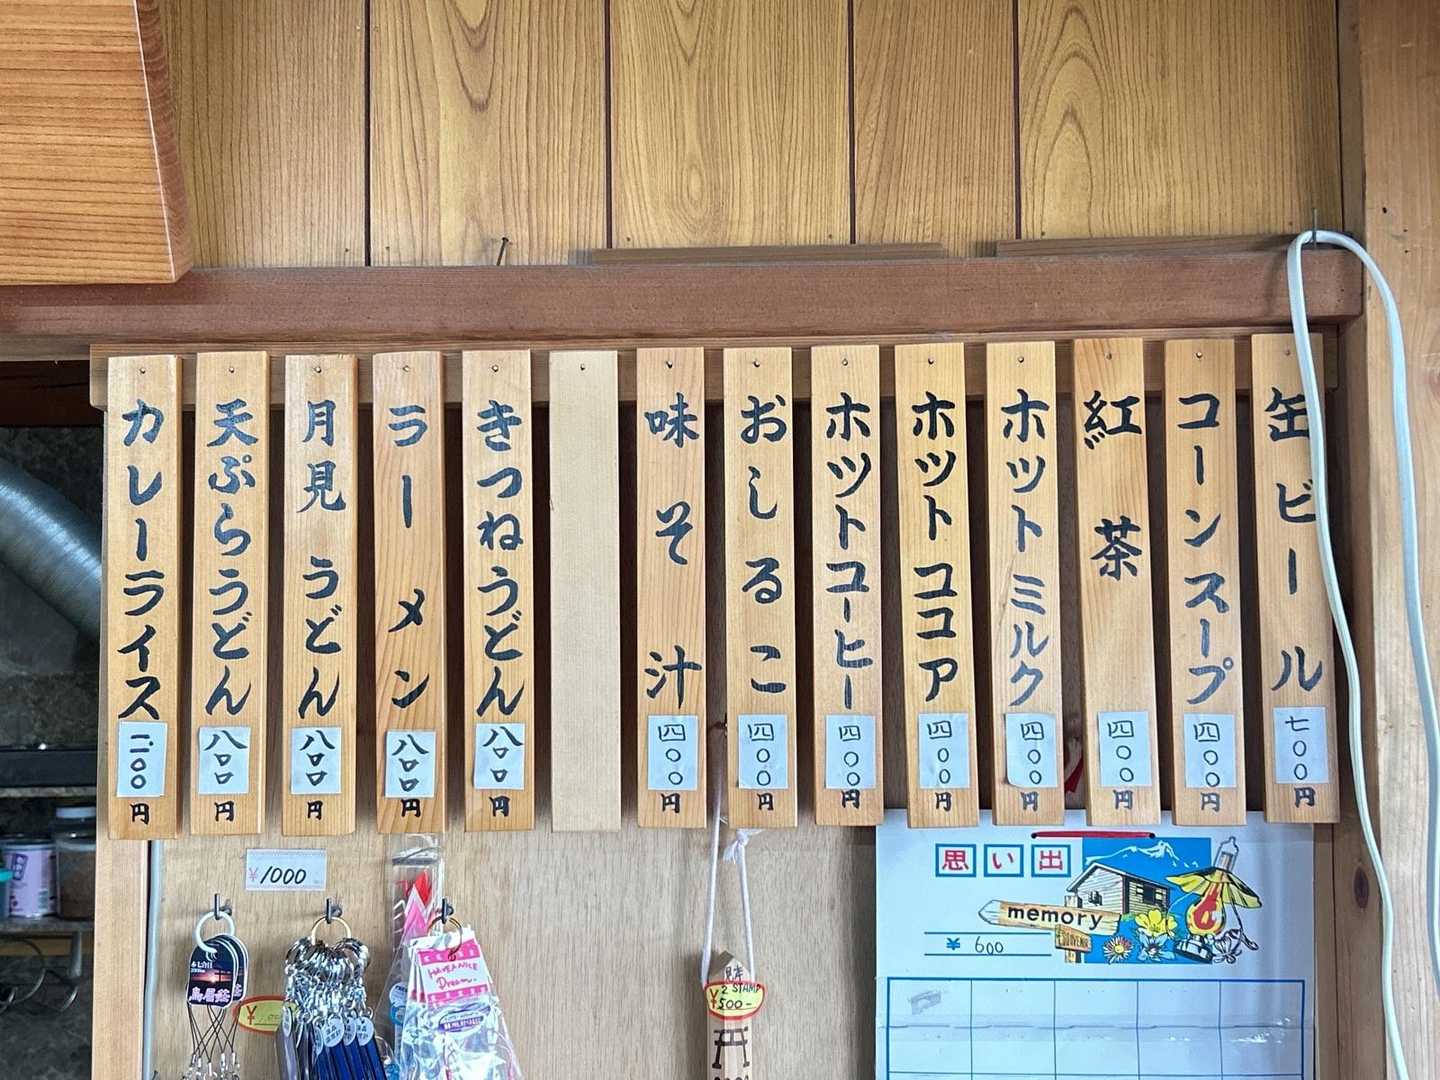 カレーライス 二〇〇円
天ぷらうどん 八〇〇円
月見うどん 八〇〇円
ラーメン 八〇〇円
きつねうどん 八〇〇円
味そ汁 四〇〇円
おしるこ 四〇〇円
ホットコーヒー 四〇〇円
ホットココア 四〇〇円
ホットミルク 四〇〇円
紅茶 四〇〇円
コーンスープ 四〇〇円
缶ビール 七〇〇円
¥1000
思い出
memory
SOUVENIR
¥ 600
HAVE A NICE
Dream
見本
2 STAMP
¥500-